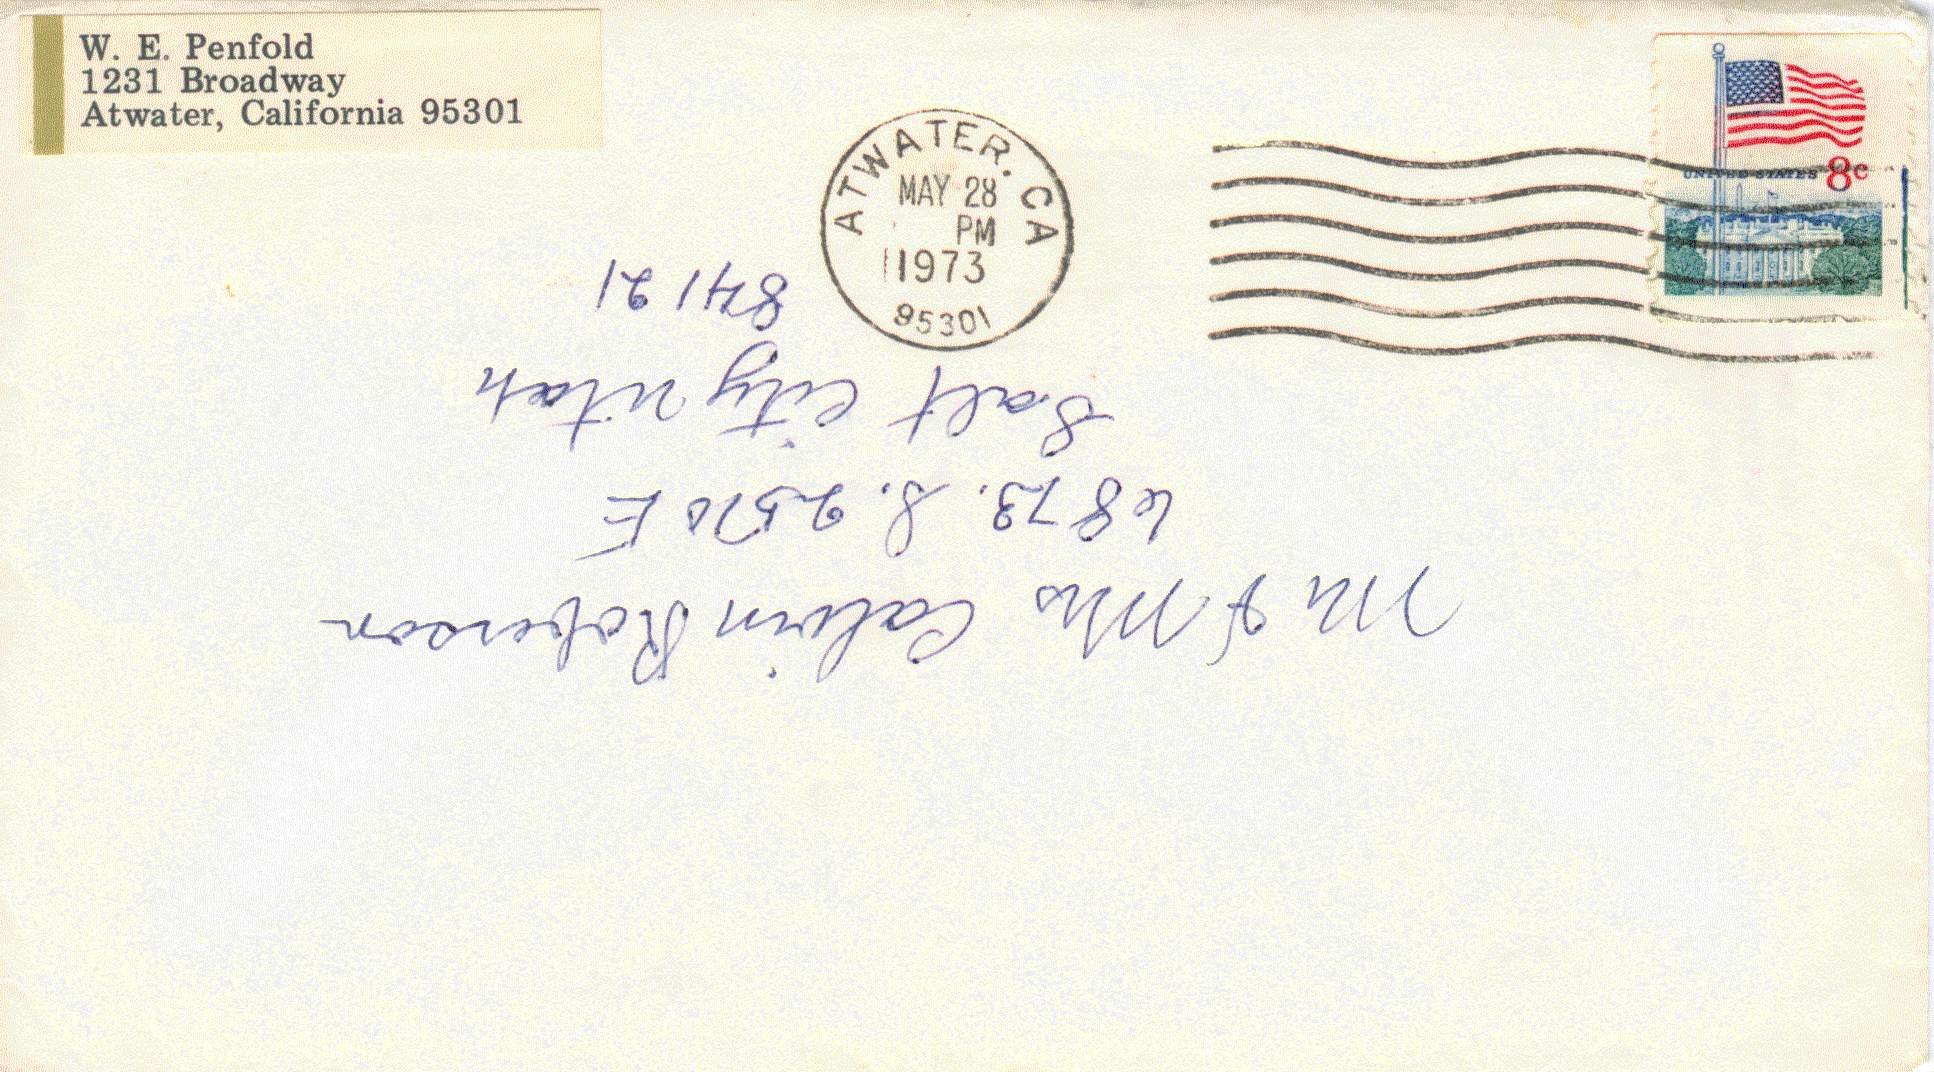 W. E. Penfold
1231 Broadway
Atwater, California 95301
ATWATER. CA
MAY 28
PM
1973
95301
UNITED STATES 8c
Mr & Mrs Calvin Roberson
6873. S. 2570 E
Salt City Utah
84121